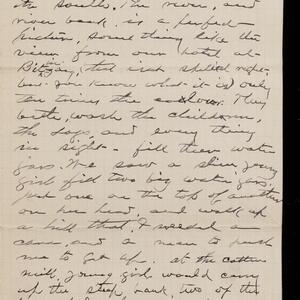 the south. The river, and
river bank is a perfect
picture, some thing like the
view from our hotel at
that isnt spelled right
but you know what it is) only
ten times the They
bathe, wash the children,
the dogs, and every thing
in sight - fill their water
jars. We saw a slim young
girl fill two big water jars,
put one on the top of another
on her head, and walk up
a hill that I needed a
cane, and a man to push
me to get up. at the cotton
mill, young girls would carry
up the steep bank two of the